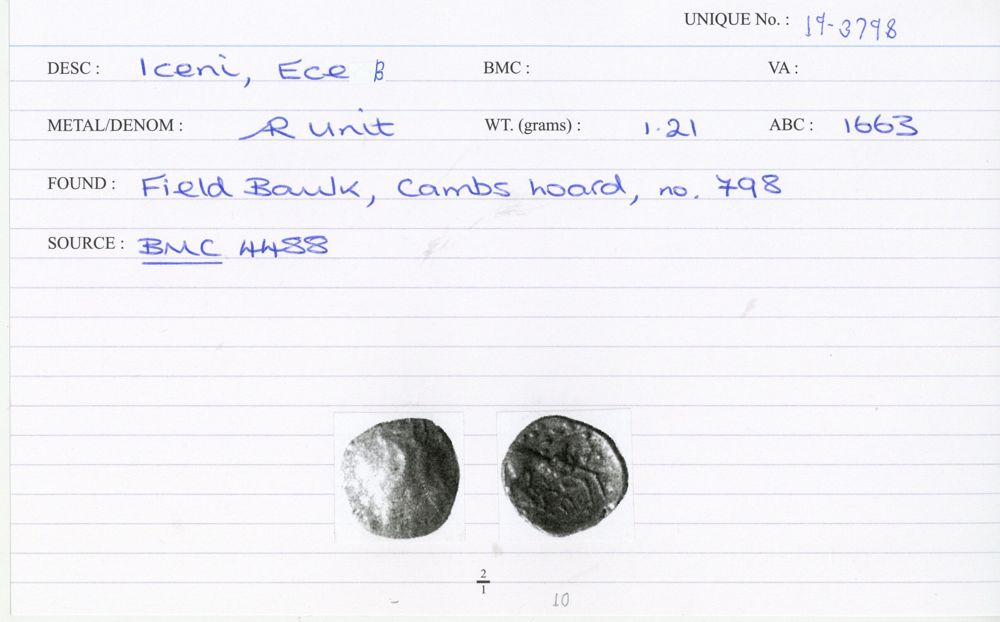 UNIQUE No. : 19-3798
DESC : Iceni, Ece B BMC : VA :
METAL/DENOM : AR Unit WT. (grams) : 1.21 ABC : 1663
FOUND : Field Bawk, Cambs hoard, no. 798
SOURCE : BMC 4488
2
1
- 10